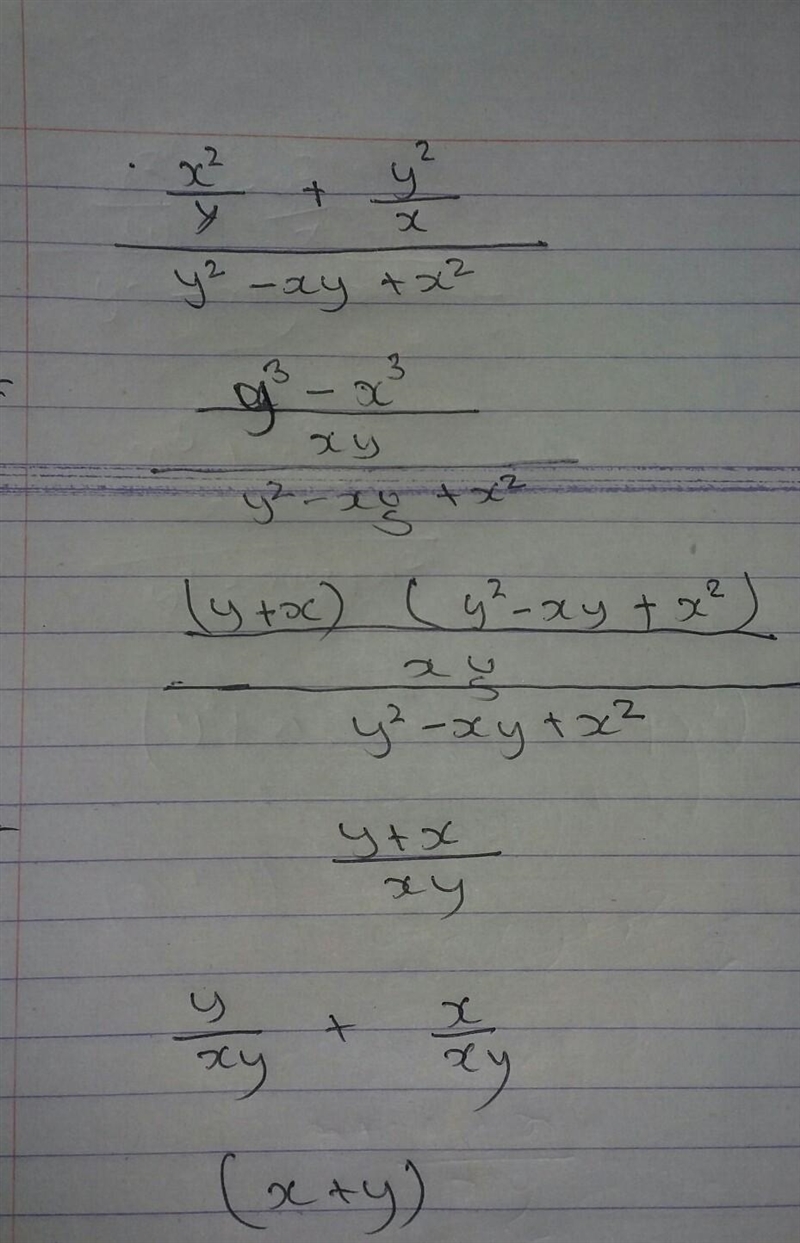 x²/y + y²/x
y² - xy + x²
y³ - x³
xy
y² - xy + x²
(y + x) (y² - xy + x²)
xy
y² - xy + x²
y + x
xy
y/xy + x/xy
(x + y)